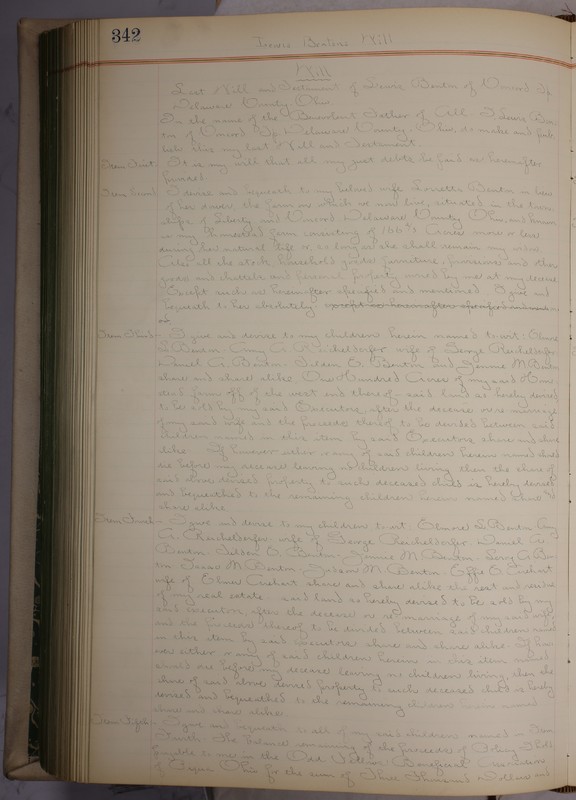 342
Lewis Benton's Will
Will
Last Will and Testament of Lewis Benton of Concord Tp.
Delaware County, Ohio.
In the name of the Benevolent Father of All. I Lewis Ben-
ton of Concord Tp. Delaware County, Ohio, do make and pub-
lish this my last Will and Testament.
Item First. It is my will that all my just debts be paid as hereinafter
provided.
Item Second. I devise and bequeath to my beloved wife Benton in lieu
of her dower, the farm on which we now live, situated in the town-
ships of Liberty and Concord Delaware County Ohio, and known
as my Homestead farm consisting of 166 Acres more or less
during her natural life or as long as she shall remain my widow.
Also all the stock, household goods, furniture, provisions and other
goods and chattels and personal property owned by me at my decease
Except such as hereinafter specified and mentioned. I give and
bequeath to her absolutely except as hereinafter specified and
Item Third. I give and devise to my children herein named to-wit:
S. Benton. Amy A. Reicheldorfer wife of George Reicheldorfer
Daniel A. Benton. Selden O. Benton and Jennie M. Benton
share and share alike, One Hundred Acres of my said Home-
stead farm off of the west end thereof said land as hereby devised
to be sold by my said Executors, after the decease or re-marriage
of my said wife and the proceeds thereof to be divided between said
children named in this item by said Executors share and share
alike. If however either or any of said children herein named should
die before my decease leaving no children living then the share of
said above devised property to such deceased child is hereby devised
and bequeathed to the remaining children herein named share &
share alike.
Item Fourth. I give and devise to my children to-wit: S. Benton Amy
A. Reicheldorfer wife of George Reicheldorfer. Daniel A.
Benton. Selden O. Benton. Jennie M. Benton. A. Ben-
ton. Isaac M. Benton. Judson M. Benton. Effie O.
wife of Elmer share and share alike the rest and residue
of my real estate said land as hereby devised to be sold by my
said executors, after the decease or re-marriage of my said wife
and the proceeds thereof to be divided between said children named
in this item by said executors share and share alike. If how-
ever either or any of said children herein in this item named
should die before my decease leaving no children living, then the
share of said above devised property to such deceased child is hereby
devised and bequeathed to the remaining children herein named
share and share alike.
Item Fifth. I give and bequeath to all of my said children named in Item
Fourth. The balance remaining of the proceeds of Policy
payable to me in the Odd Fellows Beneficial Association
of Ohio for the sum of Three Thousand Dollars and